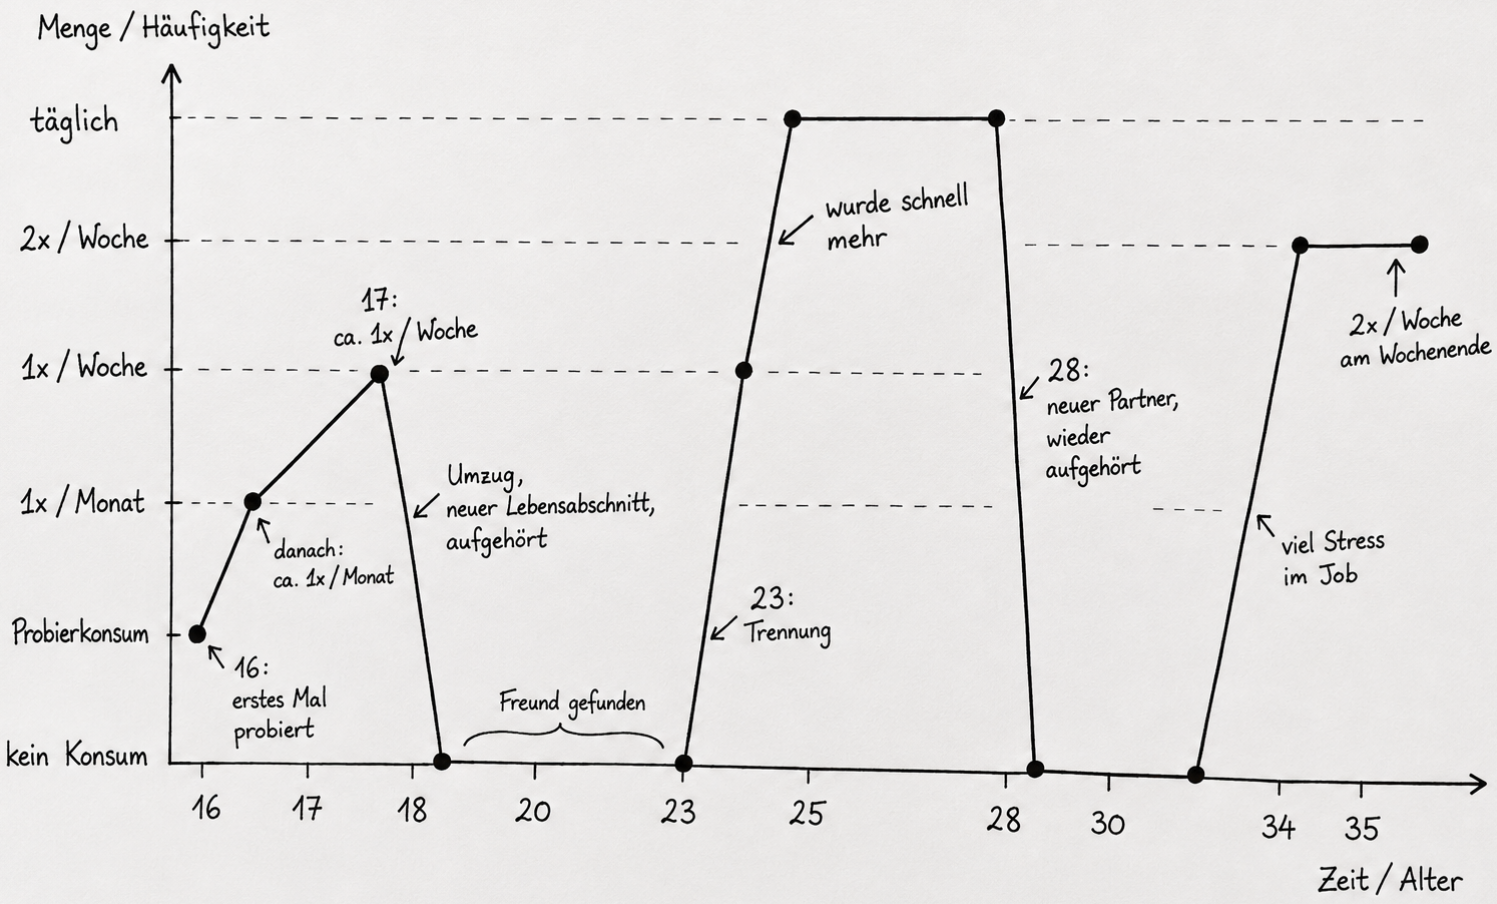 Menge / Häufigkeit
täglich
2x / Woche
1x / Woche
1x / Monat
Probierkonsum
kein Konsum
16:
erstes Mal
probiert
danach:
ca. 1x / Monat
17:
ca. 1x / Woche
Umzug,
neuer Lebensabschnitt,
aufgehört
Freund gefunden
23:
Trennung
wurde schnell
mehr
28:
neuer Partner,
wieder
aufgehört
viel Stress
im Job
2x / Woche
am Wochenende
16 17 18 20 23 25 28 30 34 35
Zeit / Alter